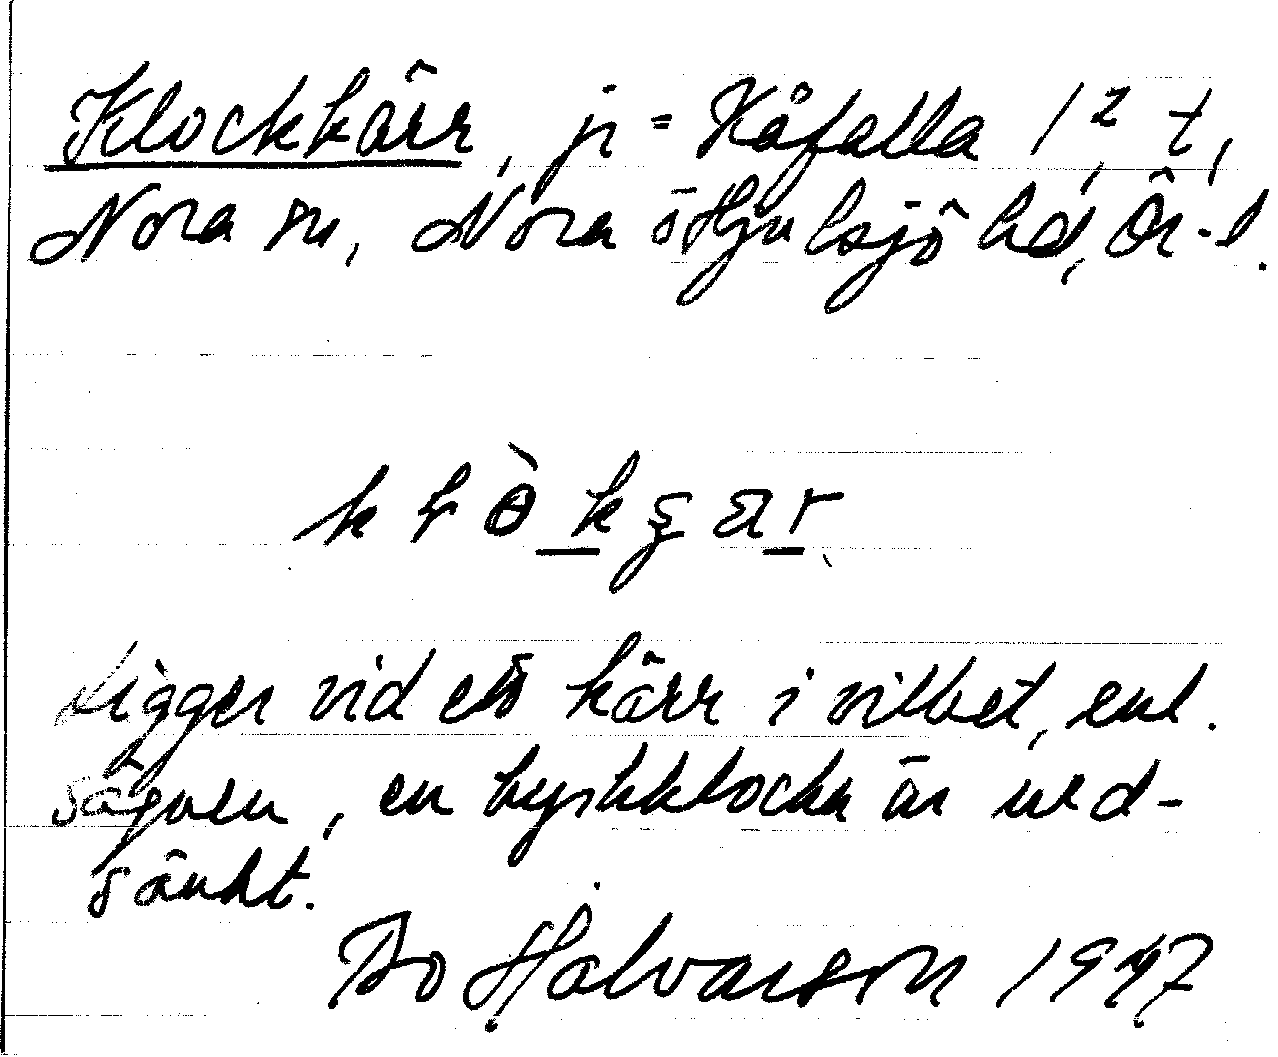 Klockkärr, ji = Kåfalla 1² t,
Nora sn, Nora o Hjulsjö hd, Ör. l.
ligger vid ett kärr i vilket, enl.
sägnen, en kyrkklocka är ned-
sänkt.
Bo Hålvarson 1947